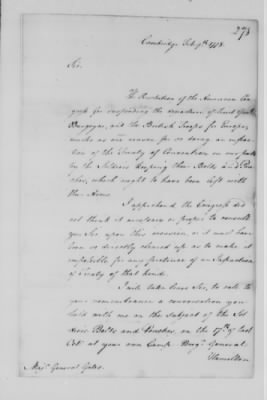 273
Cambridge Feb. 9th. 1778.
Sir,
The Resolution of the American Con-
gress for suspending the embarkation of Lieut. Genl.
Burgoyne, and the British Troops for Europe,
marks as one reason for so doing an infrac-
tion of the Treaty of Convention on our part
by the Soldiers keeping their Belts and Pou-
ches, which ought to have been left with
their Arms.
I apprehend the Congress did
not think it necessary or proper to consult
you Sir, upon this occasion, or it must have
been so directly cleared up as to make it
impossible for any pretence of an Infraction
of Treaty of that kind.
I will take leave Sir, to call to
your remembrance a conversation you
held with me on the subject of the Sol-
diers Belts and Pouches, on the 17th. of last
Octr. at your own Camp. Brigr. General
Hamilton
Majr. General Gates.